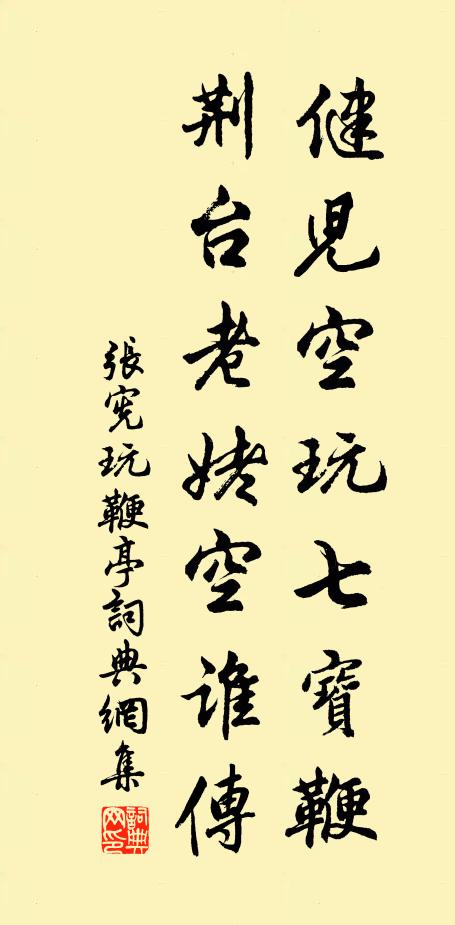 健兒空玩七寶鞭
荆台老姥空誰傳
張憲玩鞭亭詞典網集
詞典網印